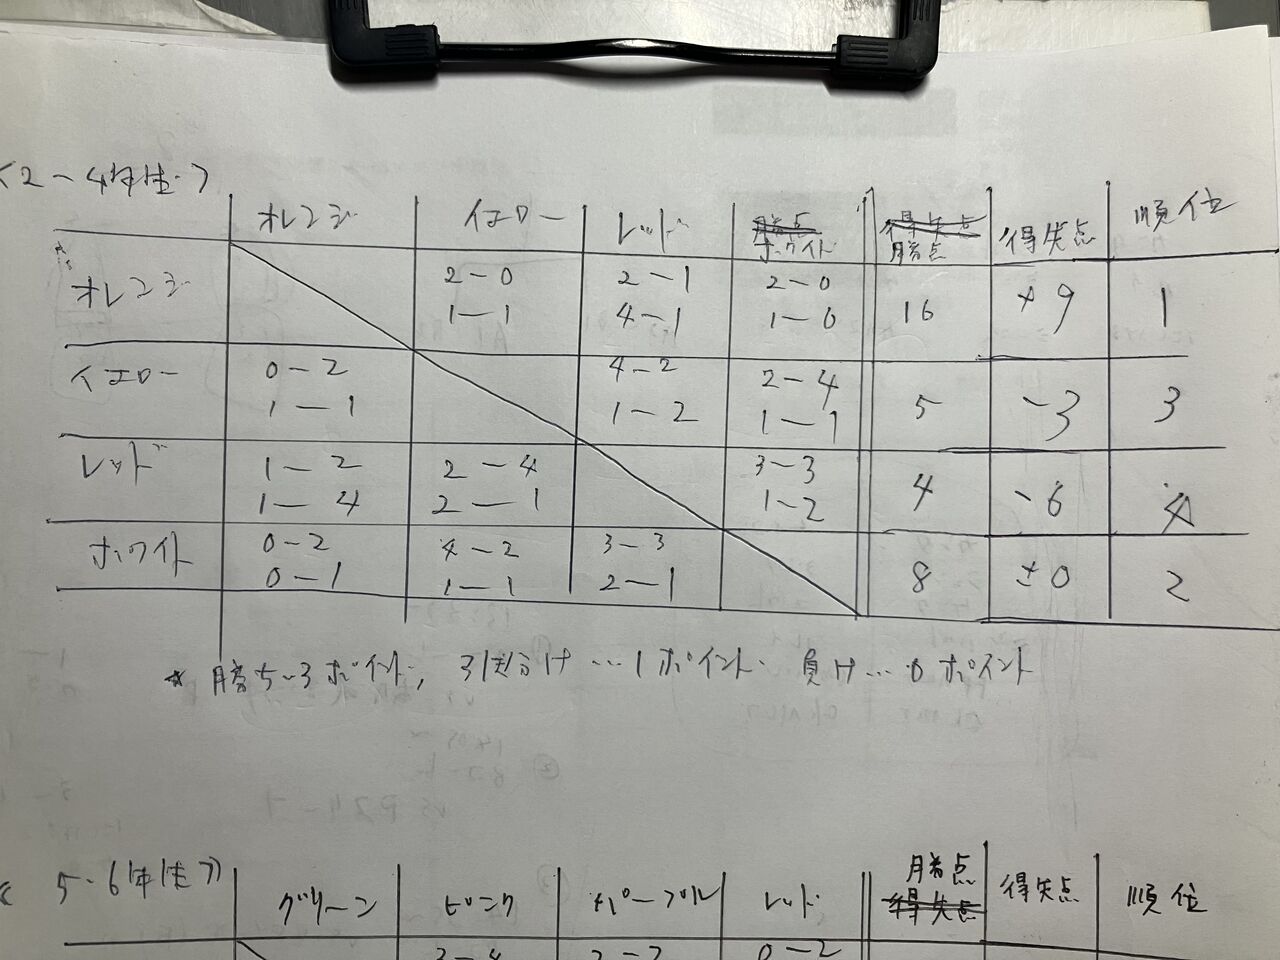 〈2-4年生〉
オレンジ イエロー レッド ホワイト 勝点 得失点 順位
オレンジ 2-0 2-1 2-0 16 +9 1
1-1 4-1 1-0
イエロー 0-2 4-2 2-4 5 -3 3
1-1 1-2 1-1
レッド 1-2 2-4 3-3 4 -6 4
1-4 2-1 1-2
ホワイト 0-2 4-2 3-3 8 ±0 2
0-1 1-1 2-1
* 勝ち…3ポイント, 引き分け…1ポイント 負け…0ポイント
〈5-6年生〉
グリーン ピンク パープル レッド 勝点 得失点 順位
0-2